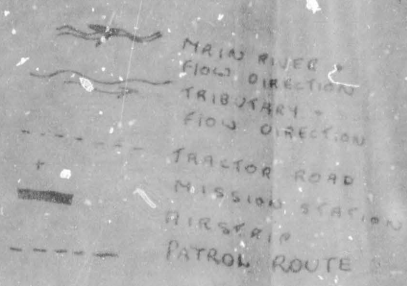 MAIN RIVER +
FLOW DIRECTION
TRIBUTARY +
FLOW DIRECTION
TRACTOR ROAD
MISSION STATION
AIRSTRIP
PATROL ROUTE